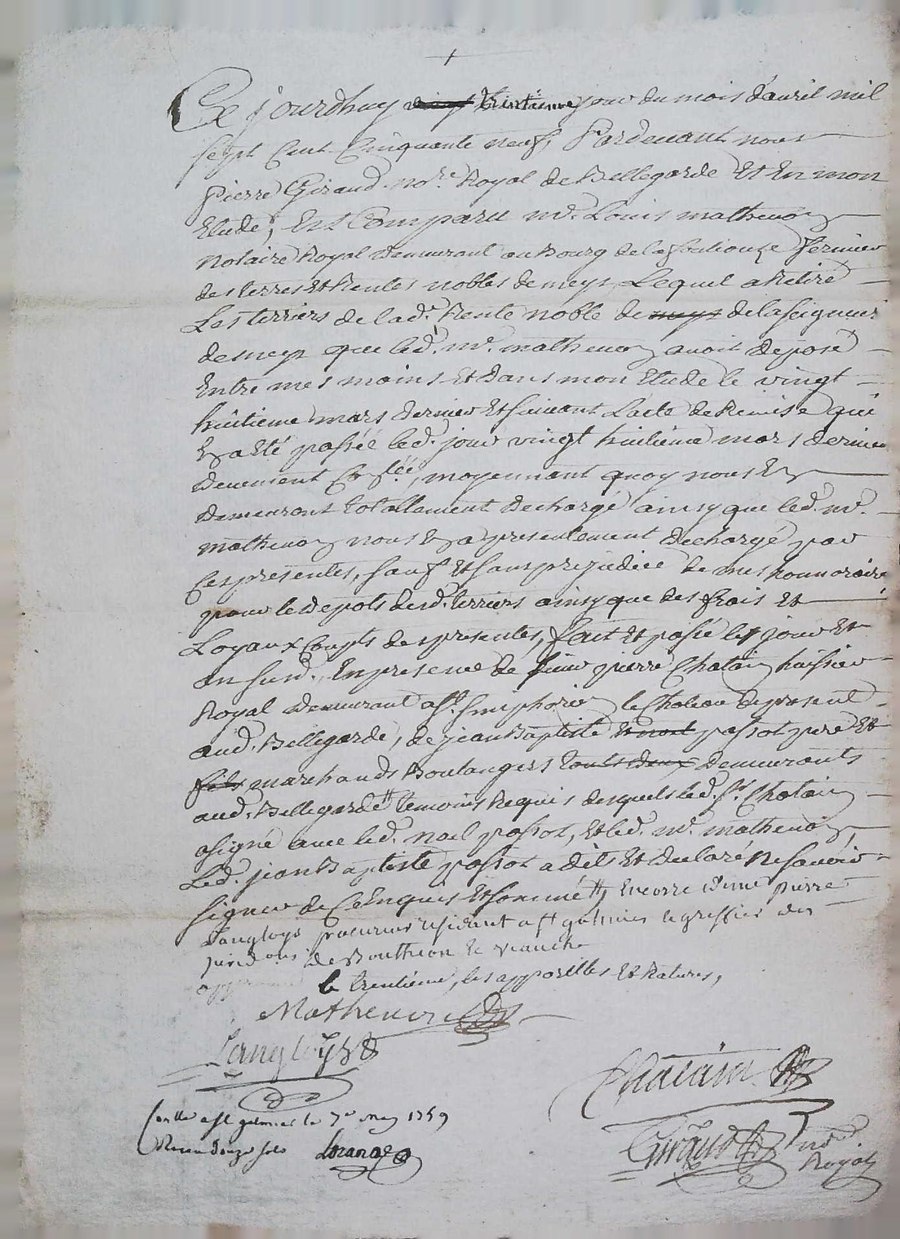 Ce jourdhuy trintieme jour du mois d'avril mil
sept cent Cinquante neuf, Pardevant nous
Pierre Giraud no.re Royal de Bellegarde Et En mon
Etude, Est Comparu m.e Louis mathevon
notaire Royal demeurant au Bourg de Fermier
des terres Et Rentes nobles de meys, Lequel a Retiré
Les terriers de lad. Rente noble de meys de la seigneurie
de meys que led. m.e mathevon avoit deposé
Entre mes mains Et dans mon Etude le vingt
huitieme mars dernier Et suivant Lacte de Remise qui
En a Eté passée led. jour vingt huitieme mars dernier
devement moyennant quoy nous En
demeurons totallement dechargé ainsy que led. m.e
mathevon nous En a presentement dechargé par
Ces presentes, sauf Et sans prejudice de mes honnoraire
pour le depots desd. terriers ainsy que des frais Et
Loyaux Coupts des presentes, fait Et passé les jour Et
an susd. En presence de pierre Chatain huissier
Royal demeurant a st. simphorien le Chateau de present
aud. Bellegarde, de jean Baptiste passot pere Et
fils marchands Boulangers touts deux demeurants
aud. Bellegarde temoins Requis desquels led. sr. Chatain
a signé avec led. noel passot, Et led. m.e mathevon,
Led. jean Baptiste passot a dits Et declaré ne savoir
signer de Ce Enquis Et sommé, Encorre Pierre
Langloys procureur residant a st galmier le greffier des
juridons de Bouthéon le vianche
le trentieme, les appostilles Et Ratures,
Mathevon
Langloys
Chatain
Con.lle a st galmier le 7e may 1759
Receu douze sols
Giraud no.re
Royal